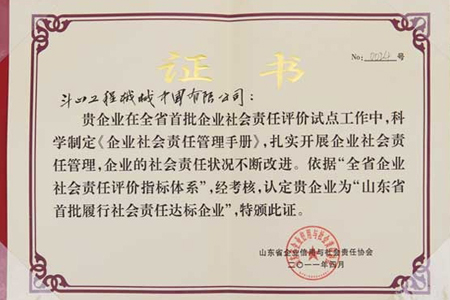 证书
No: 0024 号
斗山工程机械中国有限公司：
贵企业在全省首批企业社会责任评价试点工作中，科
学制定《企业社会责任管理手册》，扎实开展企业社会责
任管理，企业的社会责任状况不断改进。依据“全省企业
社会责任评价指标体系”，经考核，认定贵企业为“山东省
首批履行社会责任达标企业”，特颁此证。
山东省企业信用与社会责任协会
二〇一一年四月